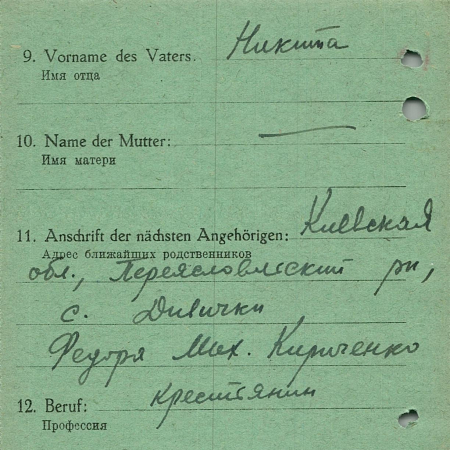 9. Vorname des Vaters. Никита
Имя отца
10. Name der Mutter: —
Имя матери
11. Anschrift der nächsten Angehörigen: Киевская
Адрес ближайших родственников
обл., Переясловлеский рн,
с. Дивички
Федоря Мих. Кириченко
12. Beruf: крестянин
Профессия